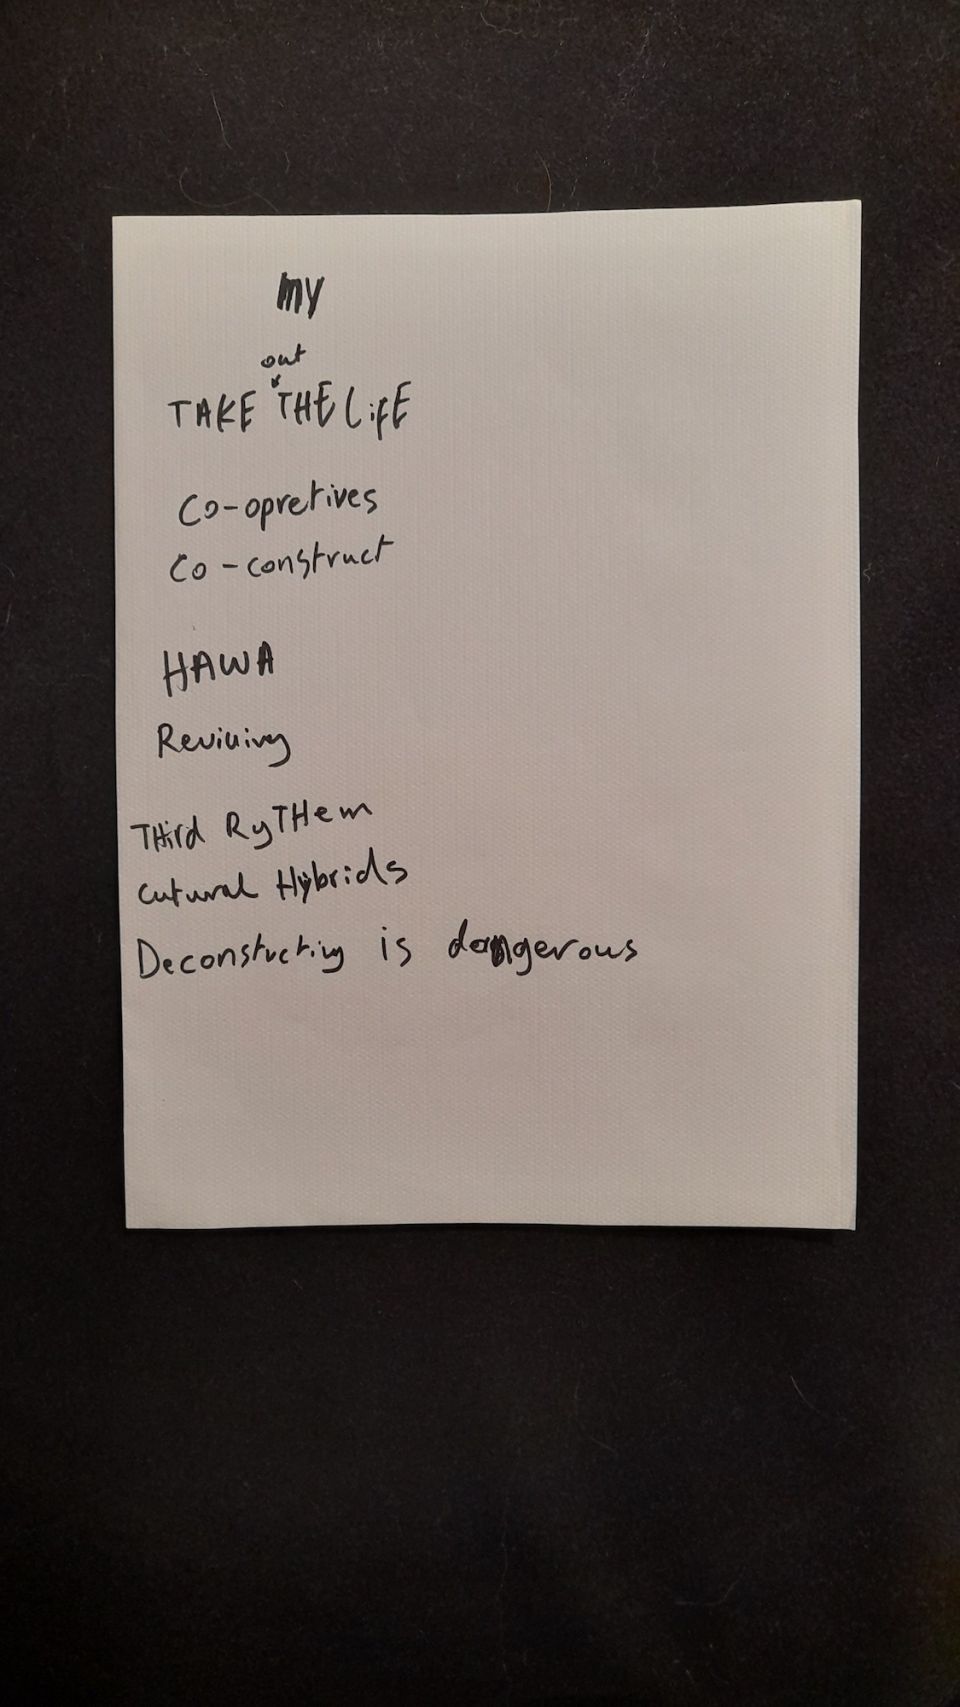 my
out
TAKE THE LiFE
Co-opretives
Co-construct
HAWA
Reviving
THird RyTHem
Cutural Hybrids
Deconstucting is dangerous